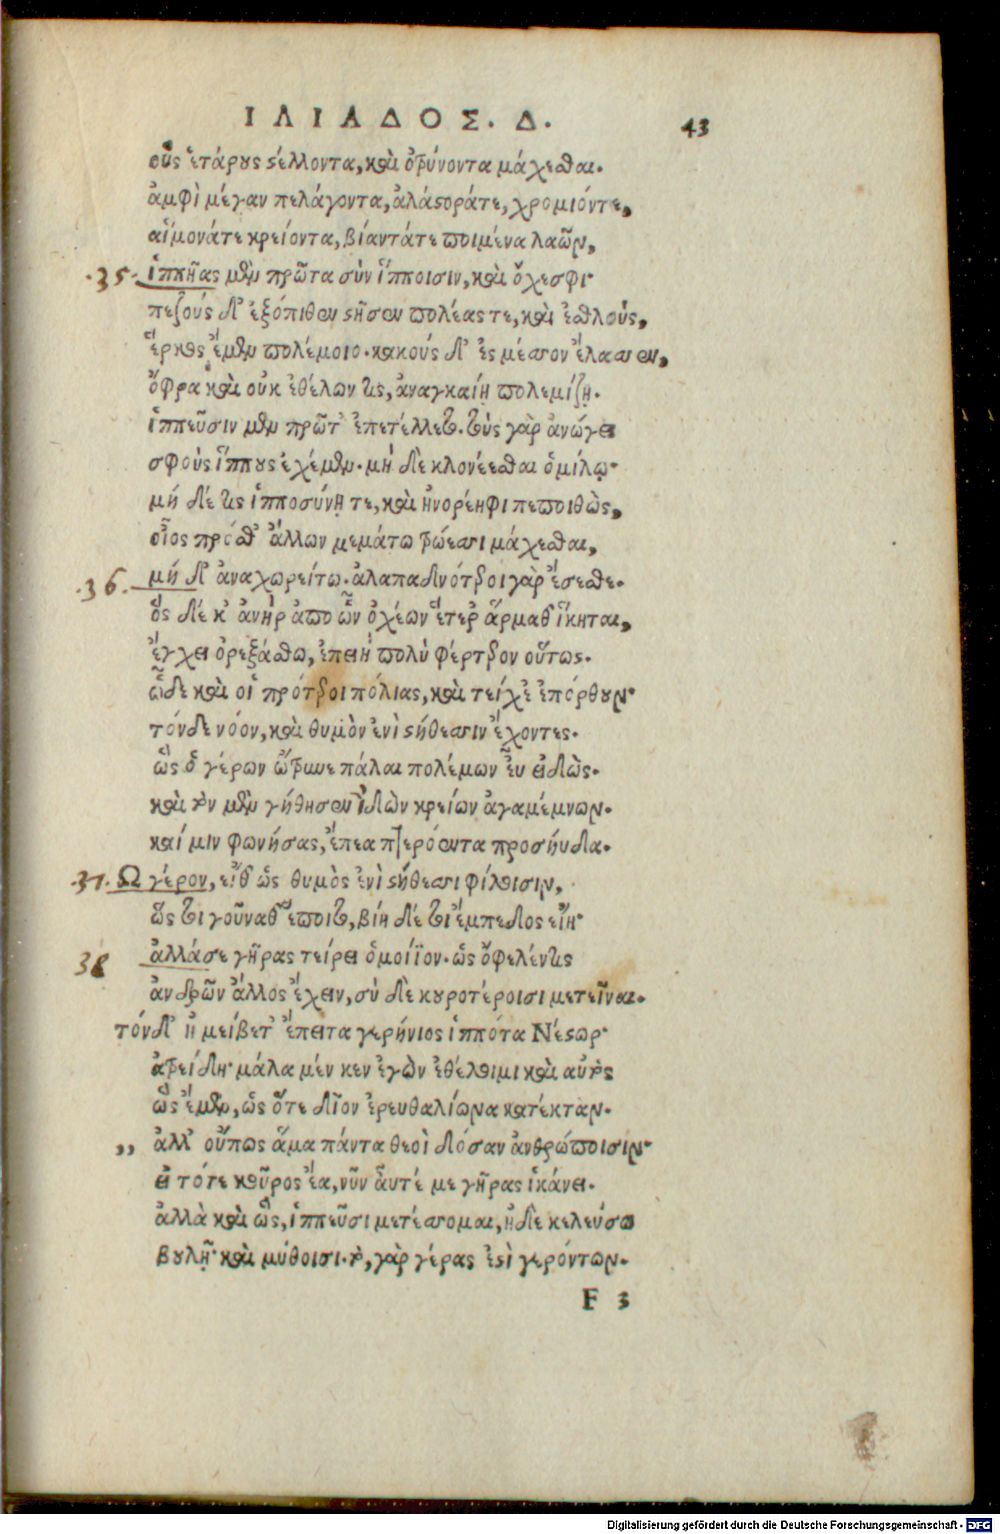 ΙΛΙΑΔΟΣ. Δ. 43
οὓς ἑτάρους στέλλοντα, καὶ ὀτρύνοντα μάχεσθαι.
ἀμφὶ μέγαν πελάγοντα, ἀλάστοράτε, χρομιόντε,
αἵμονάτε κρείοντα, βίαντάτε ποιμένα λαῶν,
·35· ἱππῆας μὲν πρῶτα σὺν ἵπποισιν, καὶ ὄχεσφι·
πεζοὺς δ' ἐξόπιθεν στῆσεν πολέας τε, καὶ ἐσθλοὺς,
ἕρκος ἔμεν πολέμοιο. κακοὺς δ' ἐς μέσσον ἔλασσεν,
ὄφρα καὶ οὐκ ἐθέλων τις, ἀναγκαίῃ πολεμίζῃ.
ἱππεῦσιν μὲν πρῶτ' ἐπετέλλετο. τοὺς γὰρ ἀνώγει
σφοὺς ἵππους ἐχέμεν. μὴ δὲ κλονέεσθαι ὁμίλῳ·
μή δέ τις ἱπποσύνῃ τε, καὶ ἠνορέηφι πεποιθὼς,
οἶος πρόσθ' ἄλλων μεμάτω τρώεσσι μάχεσθαι,
·36· μή δ' ἀναχωρείτω. ἀλαπαδνότεροι γὰρ ἔσεσθε.
ὃς δέ κ' ἀνὴρ ἀπὸ ὧν ὀχέων ἕτερ' ἅρμαθ' ἵκηται,
ἔγχει ὀρεξάσθω, ἐπειὴ πολὺ φέρτερον οὕτως.
ὧδε καὶ οἱ πρότεροι πόλιας, καὶ τείχε' ἐπόρθουν·
τόνδε νόον, καὶ θυμὸν ἐνὶ στήθεσσιν ἔχοντες.
ὣς ὁ γέρων ὤτρυνε πάλαι πολέμων ἒυ εἰδὼς.
καὶ τὸν μὲν γήθησεν ἰδὼν κρείων ἀγαμέμνων.
καί μιν φωνήσας, ἔπεα πτερόεντα προσήυδα.
·37· Ω γέρον, εἴθ' ὡς θυμὸς ἐνὶ στήθεσσι φίλοισιν,
ὥς τοι γοῦναθ' ἕποιτο, βίη δέ τοι ἔμπεδος εἴη·
38 ἀλλάσε γῆρας τείρει ὁμοίϊον. ὡς ὄφελέντις
ἀνδρῶν ἄλλος ἔχειν, σὺ δὲ κουροτέροισι μετεῖναι.
τόνδ' ἠμείβετ' ἔπειτα γερήνιος ἱππότα Νέστωρ·
ἀτρείδη· μάλα μέν κεν ἐγὼν ἐθέλοιμι καὶ αὐτὸς
ὣς ἔμεν, ὡς ὅτε δῖον ἐρευθαλίωνα κατέκταν.
,, ἀλλ' οὔπως ἅμα πάντα θεοὶ δόσαν ἀνθρώποισιν·
εἰ τότε κοῦρος ἔα, νῦν αὖτέ με γῆρας ἱκάνει.
ἀλλὰ καὶ ὣς, ἱππεῦσι μετέσσομαι, ἠδὲ κελεύσω
βουλῇ· καὶ μύθοισι. τὸ, γὰρ γέρας ἐστὶ γερόντων.
F 3
Digitalisierung gefördert durch die Deutsche Forschungsgemeinschaft - DFG